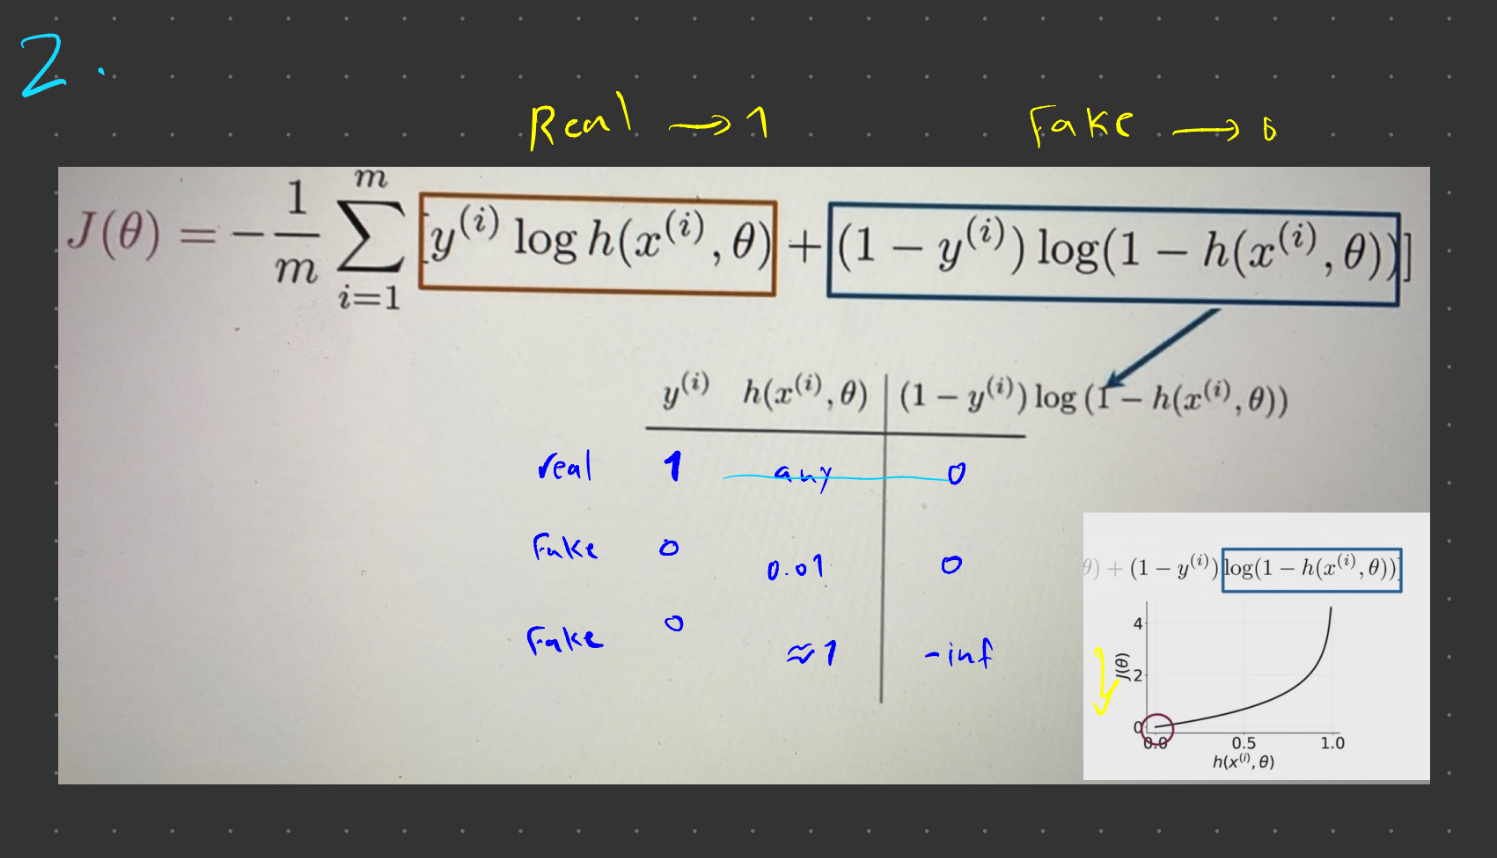 2.
Real → 1 Fake → 0
J(θ) = −1/m ∑_{i=1}^{m} [y^{(i)} log h(x^{(i)}, θ) + (1 − y^{(i)}) log(1 − h(x^{(i)}, θ))]
y^{(i)} h(x^{(i)}, θ) (1 − y^{(i)}) log (1 − h(x^{(i)}, θ))
real 1 any 0
Fake 0 0.01 0
Fake 0 ≈1 -inf
θ) + (1 − y^{(i)}) log(1 − h(x^{(i)}, θ))]
J(θ)
4
2
0
0.0 0.5 1.0
h(x^{(i)}, θ)